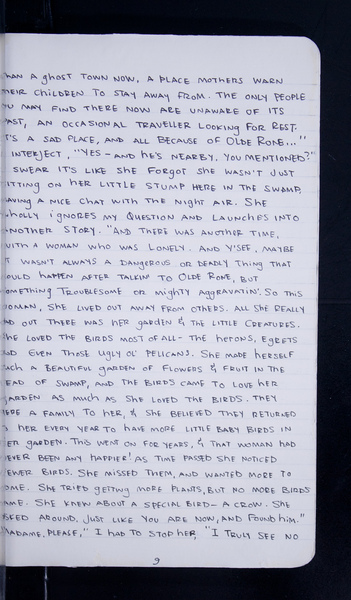 han a ghost town now, a place mothers warn
heir children to stay away from. The only people
ou may find there now are unaware of its
past, an occasional traveller looking for rest.
t's a sad place, and all because of Olde Rone..."
I interject, "Yes – and he's nearby, you mentioned?"
swear it's like she forgot she wasn't just
itting on her little stump here in the swamp,
aving a nice chat with the night air. She
holly ignores my question and launches into
nother story. "And there was another time,
with a woman who was lonely. And y'see, maybe
t wasn't always a dangerous or deadly thing that
ould happen after talkin to Olde Rone, but
omething troublesome or mighty aggravatin'. So this
woman, she lived out away from others. All she really
ad out there was her garden & the little creatures.
he loved the birds most of all – the herons, egrets
nd even those ugly ol' pelicans. She made herself
uch a beautiful garden of flowers & fruit in the
ead of swamp, and the birds came to love her
garden as much as she loved the birds. They
ere a family to her, & she believed they returned
o her every year to have more little baby birds in
er garden. This went on for years, & that woman had
never been any happier! As time passed she noticed
ewer birds. She missed them, and wanted more to
ome. She tried getting more plants, but no more birds
ame. She knew about a special bird – a crow. She
sked around, just like you are now, and found him."
"Madame, please," I had to stop her, "I truly see no
9